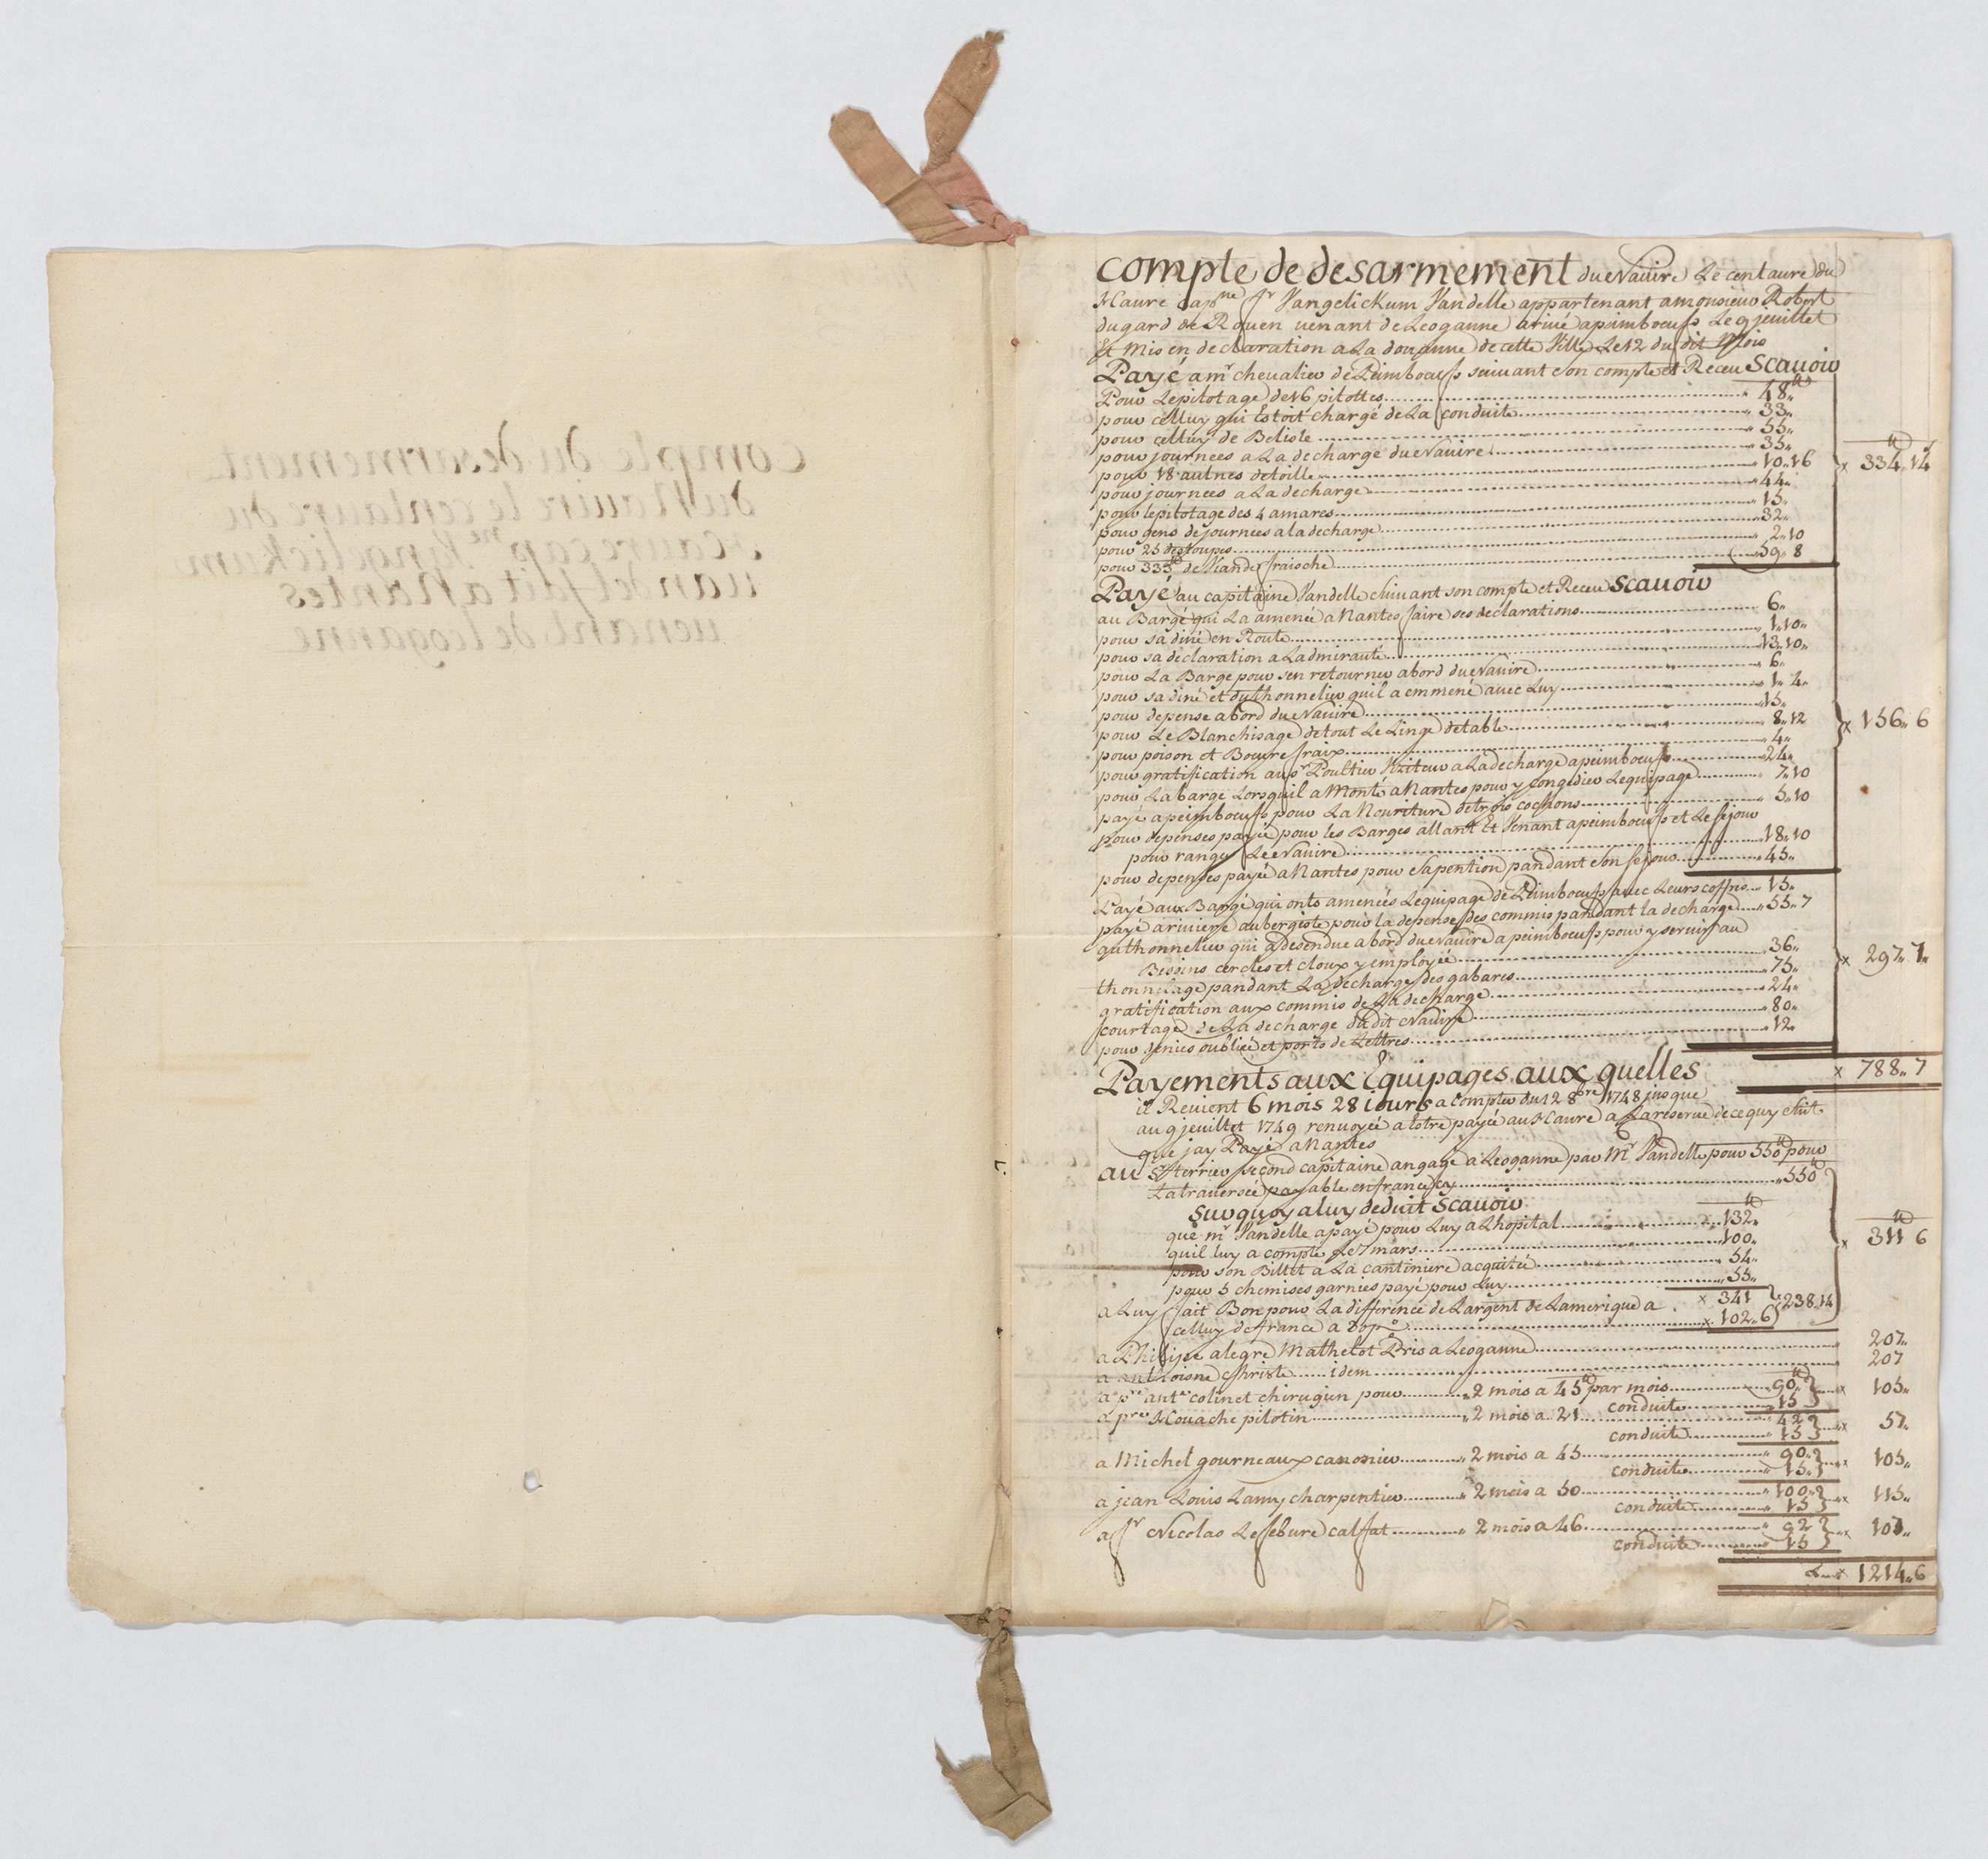 compte du desarmement
du Navire le centaure du
havre cap.ne Vangelickum
vandel fait a Nantes
venant de leoganne
compte de desarmement du Navire Le centaure du
Havre Cap.ne Sr Vangelickum Vandelle appartenant a monsieur Robert
dugard de Rouen venant de Leoganne arivé a peimboeuf Le 9 jeuillet
Et Mis en declaration a La douanne de cette Ville Le 12 du dit Mois
Payé a mr chevalier de Peimboeuf suivant son compte et Receu Scavoir
Pour Lepilotage de 16 pilottes 48"
pour celluy qui Estoit chargé de La conduite 33"
pour celluy de Belisle 55"
pour journées a La decharge du Navire 35"
pour 18 aulnes de toille 10"16
pour journées a La decharge 44"
pour lepilotage des 4 amares 15"
pour gens de journées a la decharge 32"
pour 25 destoupes 2"10
pour 333 de Viande fraische 59" 8
x 334"14
Payé au capitaine Vandelle suivant son compte et Receu Scavoir
au Barge qui La amenée a Nantes faire ses declarations 6"
pour sa diné en Route 1"10"
pour sa declaration a Ladmirauté 13"10"
pour La Barge pour sen retourner abord du Navire 6"
pour sa diné et du thonnelier quil a emmené avec Luy 1"4"
pour depense abord du Navire 15"
pour Le Blanchisage de tout Le Linge de table 8"12
pour poison et Beure fraix 4"
pour gratification au sr Poultier Viziteur a La decharge a peimboeuf 24"
pour La barge Lorsquil a Monté a Nantes pour y congedier Lequipage 7"10
payé a peimboeuf pour La Nouriture de trois cochons 5"10
pour depenses payée pour les Barges allant Et Venant a peimboeuf et Le sejour
pour ranger Le Navire 18"10
pour depenses payée a Nantes pour sa pention pandant son sejour 45"
x 156" 6
Payé aux Barge qui onts amenées Lequipage de Peimboeuf avec Leurs coffres 15"
payé a riviere aubergiste pour la depense des commis pandant la decharge 55"7
au thonnelier qui a desendue abord du Navire a peimboeuf pour y servir au
Besoins cercles et cloux y employée 36"
thonnelage pandant La decharge des gabares 75"
gratification aux commis de La decharge 24"
courtage de La decharge du dit Navire 80"
pour denies oubliée et ports de Lettres 12"
x 297"7"
x 788"7
Payements aux Equipages aux quelles
il Revient 6 mois 28 iours a compter du 12 8bre 1748 jusque
au 9 jeuillet 1749 renvoyée a Estre payée au Havre a La reserve de ce quy suit
que jay Payé a Nantes
au Sr terrier second capitaine angagé a Leoganne par Mr Vandelle pour 550 pour
La traversée payable en france cy 550
Sur quoy a luy deduit Scavoir
que mr Vandelle a payé pour Luy a Lhopital 132"
quil luy a compté Le 7 mars 100"
pour son Billet a La cantiniere acquitée 54"
pour 5 chemises garnies payé pour Luy 55"
x 341
a Luy fait Bon pour La difference de Largent de Lamerique a
celluy de france a 30 p% x 102"6 238"14
x 311 6
a Philipe alegre Mathelot Pris a Leoganne 207"
a anthoisne Christe idem 207
a pre antne colinet chirugien pour 2 mois a 45 par mois 90"
conduite 15 x 105"
a pre Houache pilotin 2 mois a 21 42
conduite 15 x 57"
a Michel gourneaux canonier 2 mois a 45 90"
conduite 15" x 105"
a jean Louis Lamy charpentier 2 mois a 50 100"
conduite 15 x 115"
a Sr Nicolas Lefebure calfat 2 mois a 46 92
conduite 15 x 107"
x 1214"6